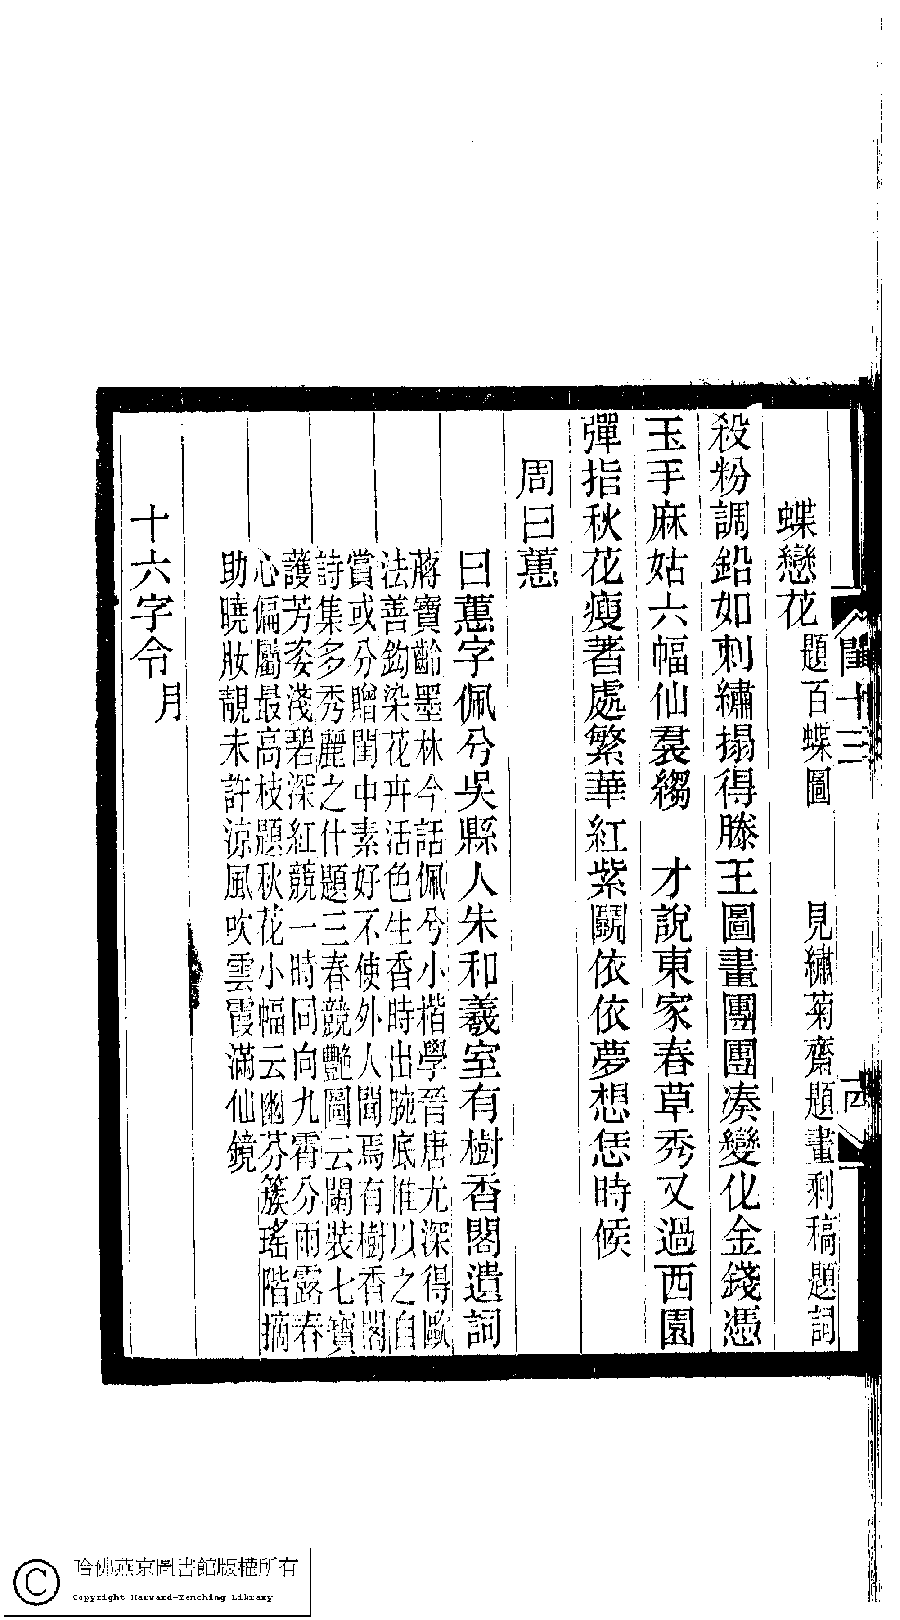 蝶戀花 題百蝶圖 見繡菊齋題畫剩稿題詞
殺粉調鉛如刺繡搨得滕王圖畫團團湊變化金錢憑
玉手麻姑六幅仙裠縐 才說東家春草秀又過西園
彈指秋花瘦著處繁華紅紫鬭依依夢想恁時候
周曰蕙
曰蕙字佩兮吳縣人朱和羲室有樹香閣遺詞
蔣寶齡墨林今話佩兮小楷學晉唐尤深得歐
法善鈎染花卉活色生香時出腕底惟以之自
賞或分贈閨中素好不使外人聞焉有樹香閣
詩集多秀麗之什題三春競艷圖云闌裝七寶
護芳姿淺碧深紅競一時同向九霄分雨露春
心偏屬最高枝題秋花小幅云幽芬簇瑤階摘
助曉妝靚未許涼風吹雲霞滿仙鏡
十六字令 月
閨十三
四
哈佛燕京圖書館版權所有
Copyright Harvard-Yenching Library